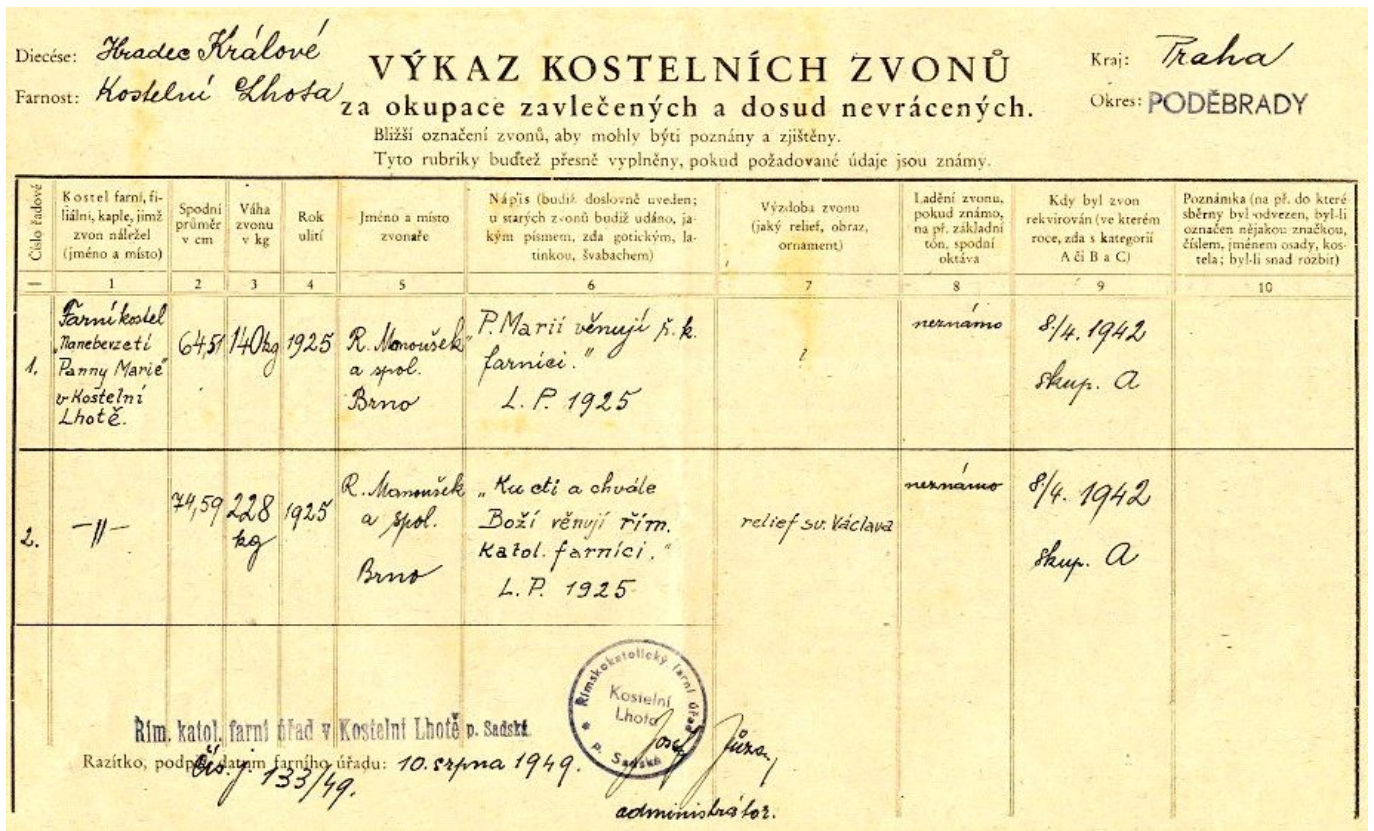 Diecése: Hradec Králové
Farnost: Kostelní Lhota
VÝKAZ KOSTELNÍCH ZVONŮ
za okupace zavlečených a dosud nevrácených.
Bližší označení zvonů, aby mohly býti poznány a zjištěny.
Tyto rubriky buďtež přesně vyplněny, pokud požadované údaje jsou známy.
Kraj: Praha
Okres: PODĚBRADY
Číslo řadové
Kostel farní, fi-
liální, kaple, jimž
zvon náležel
(jméno a místo)
Spodní
průměr
v cm
Váha
zvonu
v kg
Rok
ulití
Jméno a místo
zvonaře
Nápis (budiž doslovně uveden;
u starých zvonů budiž udáno, ja-
kým písmem, zda gotickým, la-
tinkou, švabachem)
Výzdoba zvonu
(jaký relief, obraz,
ornament)
Ladění zvonu,
pokud známo,
na př. základní
tón, spodní
oktáva
Kdy byl zvon
rekvirován (ve kterém
roce, zda s kategorií
A či B a C)
Poznámka (na př. do které
sběrny byl odvezen, byl-li
označen nějakou značkou,
číslem, jménem osady, kos-
tela; byl-li snad rozbit)
1 2 3 4 5 6 7 8 9 10
1.
Farní kostel
„Naneberzetí
Panny Marie"
v Kostelní
Lhotě.
64,51
140kg
1925
R. Manoušek
a spol.
Brno
"P. Marii věnují ř. k.
farníci."
L. P. 1925
?
neznámo
8./4. 1942
skup. A
2.
—//—
74,59
228
kg
1925
R. Manoušek
a spol.
Brno
„Ku cti a chvále
Boží věnují řím.
katol. farníci."
L. P. 1925
relief sv. Václava
neznámo
8/4. 1942
skup. A
Řím. katol. farní úřad v Kostelní Lhotě p. Sadská
Římskokatolický farní úřad
Kostelní
Lhota
P. Sadská
Razítko, podpis, datum farního úřadu: 10. srpna 1949.
Čís. j. 133/49.
Josef
administrátor.